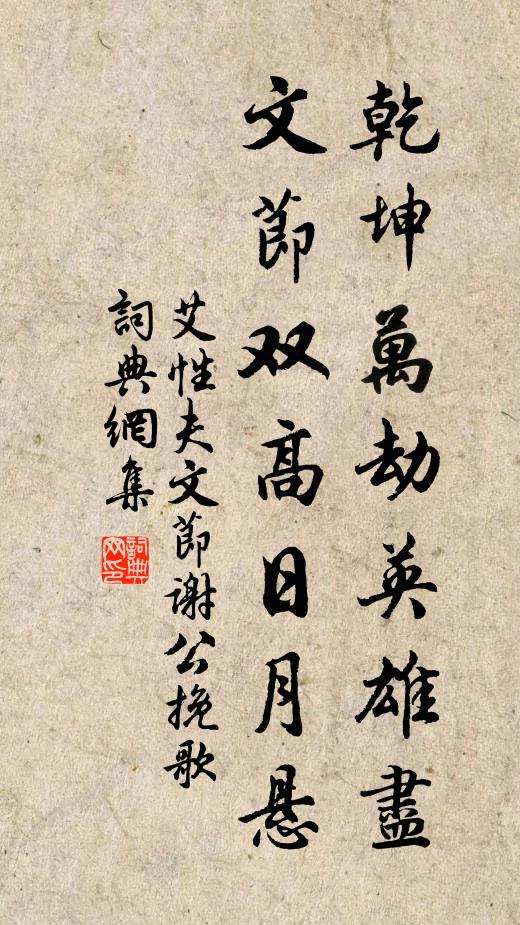 乾坤萬劫英雄盡
文節双高日月悬
艾性夫文節謝公挽歌
詞典網集
詞典网印